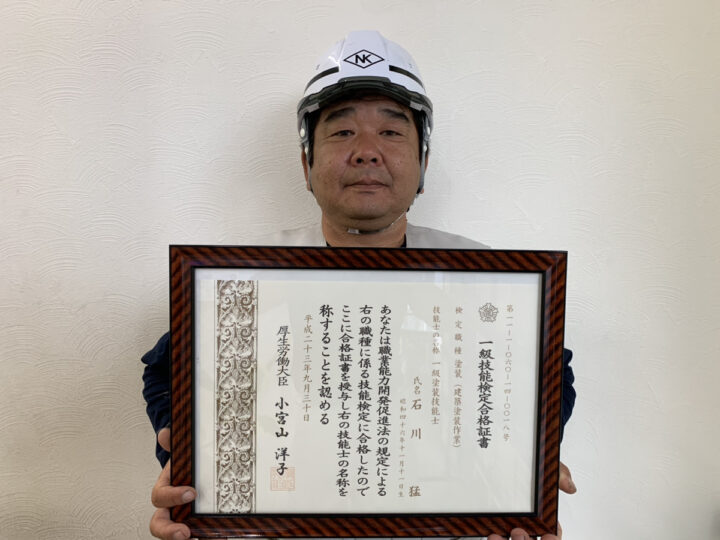 NK
第一一-一-〇六〇-一四-〇〇一八号
一級技能検定合格証書
検定職種 塗装(建築塗装作業)
技能士の名称 一級塗装技能士
氏名 石川 猛
昭和四十六年十一月十一日生
あなたは職業能力開発促進法の規定による
右の職種に係る技能検定に合格したので
ここに合格証書を授与し右の技能士の名称を
称することを認める
平成二十三年九月三十日
厚生労働大臣 小宮山 洋子